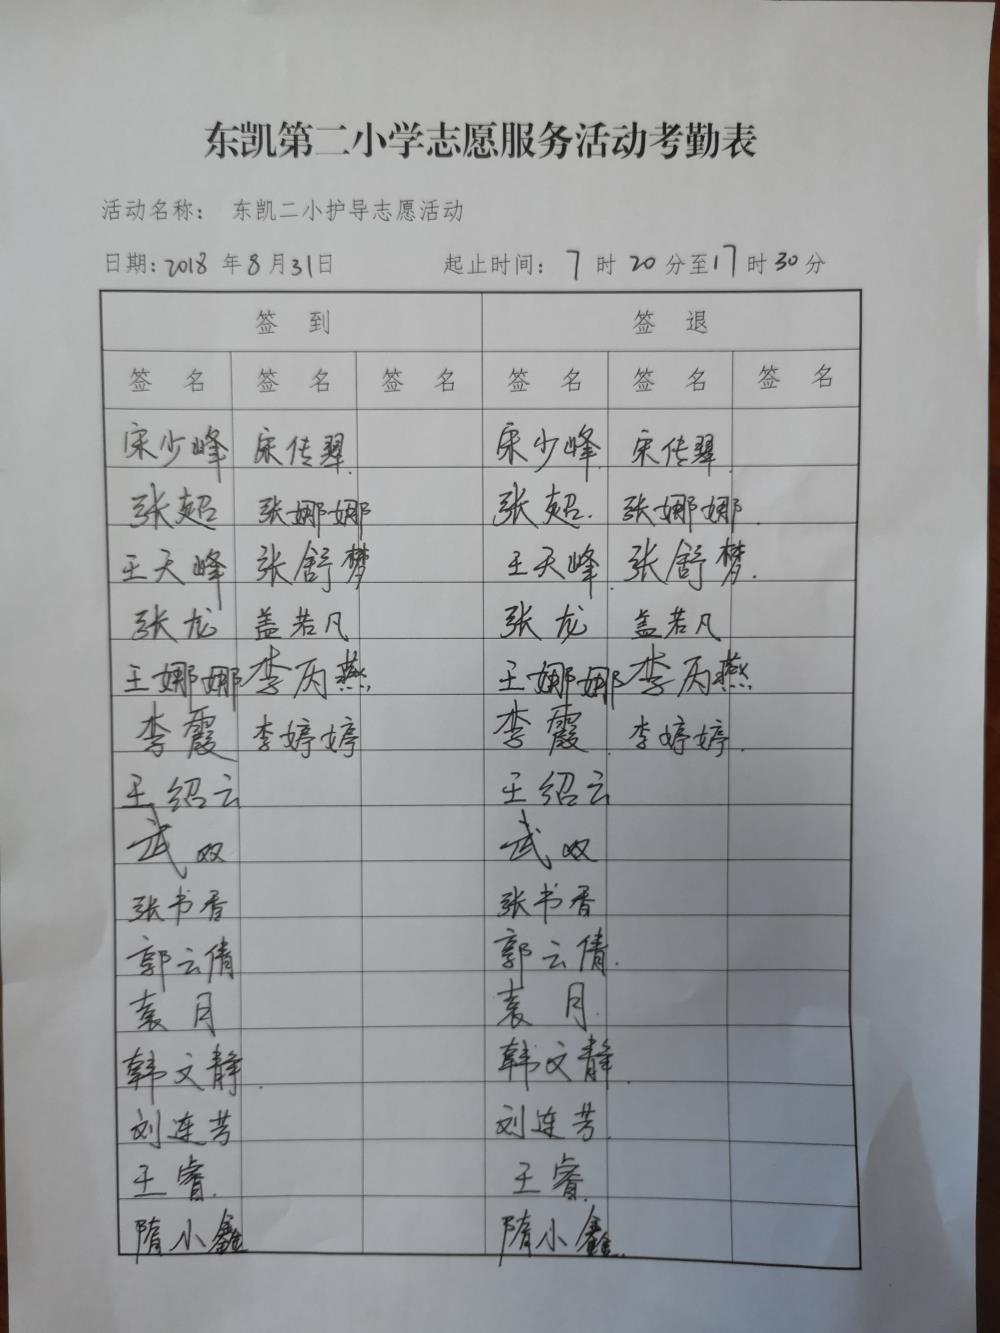 东凯第二小学志愿服务活动考勤表
活动名称： 东凯二小护导志愿活动
日期：2018 年 8 月 31 日 起止时间： 7 时 20 分至 17 时 30 分
签 到 签 退
签 名 签 名 签 名 签 名 签 名 签 名
宋少峰 宋传翠 宋少峰 宋传翠
张超 张娜娜 张超 张娜娜
王天峰 张舒梦 王天峰 张舒梦
张龙 盖若凡 张龙 盖若凡
王娜娜 李丙燕 王娜娜 李丙燕
李霞 李婷婷 李霞 李婷婷
王绍云 王绍云
武双 武双
张书香 张书香
郭云倩 郭云倩
袁月 袁月
韩文静 韩文静
刘连芳 刘连芳
王睿 王睿
隋小鑫 隋小鑫